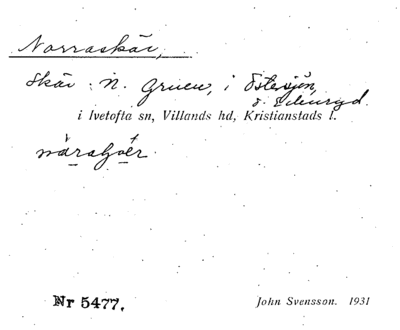 Norraskär,
Skär N. Gruen, i Östersjön,
ö. Edenryd.
i Ivetofta sn, Villands hd, Kristianstads l.
Nr 5477.
John Svensson. 1931